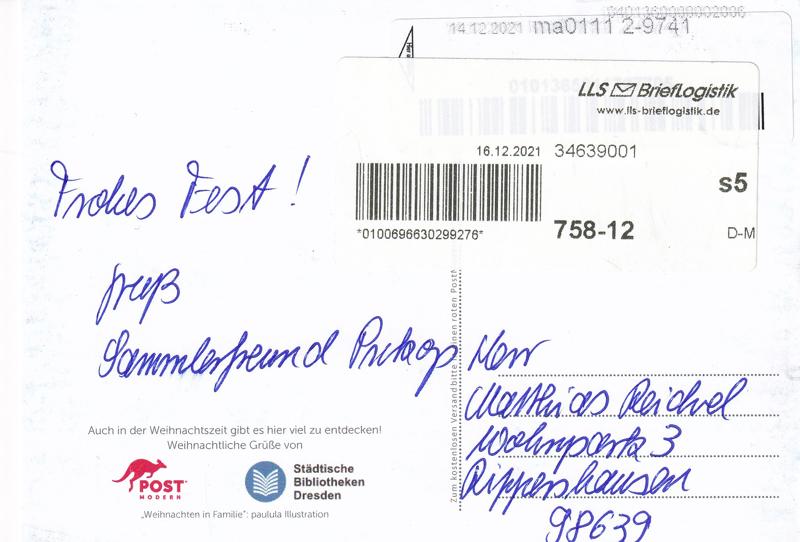 14.12.2021 ma0111 2-9741
LLS BriefLogistik
www.lls-brieflogistik.de
16.12.2021 34639001
s5
*0100696630299276*
758-12
D-M
Frohes Fest!
Gruß
Sammlerfreund
Herr
Matthias Reichel
Wohnpark 3
Rippershausen
98639
Auch in der Weihnachtszeit gibt es hier viel zu entdecken!
Weihnachtliche Grüße von
POST
MODERN
Städtische
Bibliotheken
Dresden
„Weihnachten in Familie“: paulula Illustration
Zum kostenlosen Versand bitte
nen roten Post